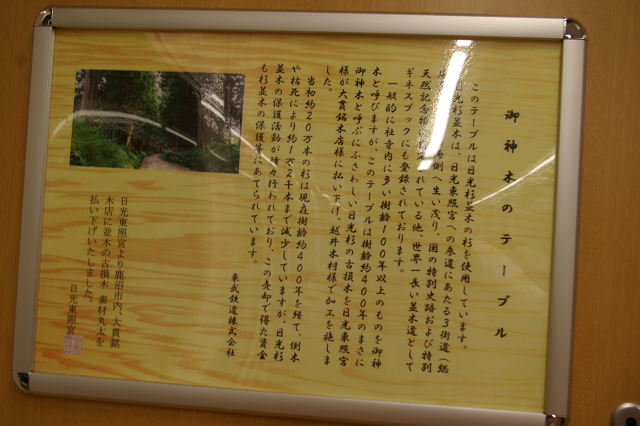 御神木のテーブル
このテーブルは日光杉並木の杉を使用しています。
日光杉並木は、日光東照宮への参道にあたる3街道(総
両側へ生い茂り、国の特別史跡および特別
天然記念物 されている他、世界一長い並木道として
ギネスブックにも登録されております。
一般的に社寺内に多い樹齢100年以上のものを御神
木と呼びますが、このテーブルは樹齢約400年のまさに
御神木と呼ぶにふさわしい日光杉の古損木を日光東照宮
様が大貫銘木店様に払い下げ、越井木材様で加工を施しま
した。
当初約20万本の杉は現在樹齢約400年を経て、倒木
や枯死により約1万2千本まで減少していますが、日光杉
並木の保護活動が様々行われており、この売却で得た資金
も杉並木の保護等にあてられています。
東武鉄道株式会社
日光東照宮より鹿沼市内、大貫銘
木店に並木の古損木 素材丸太を
払い下げいたしました。
日光東照宮